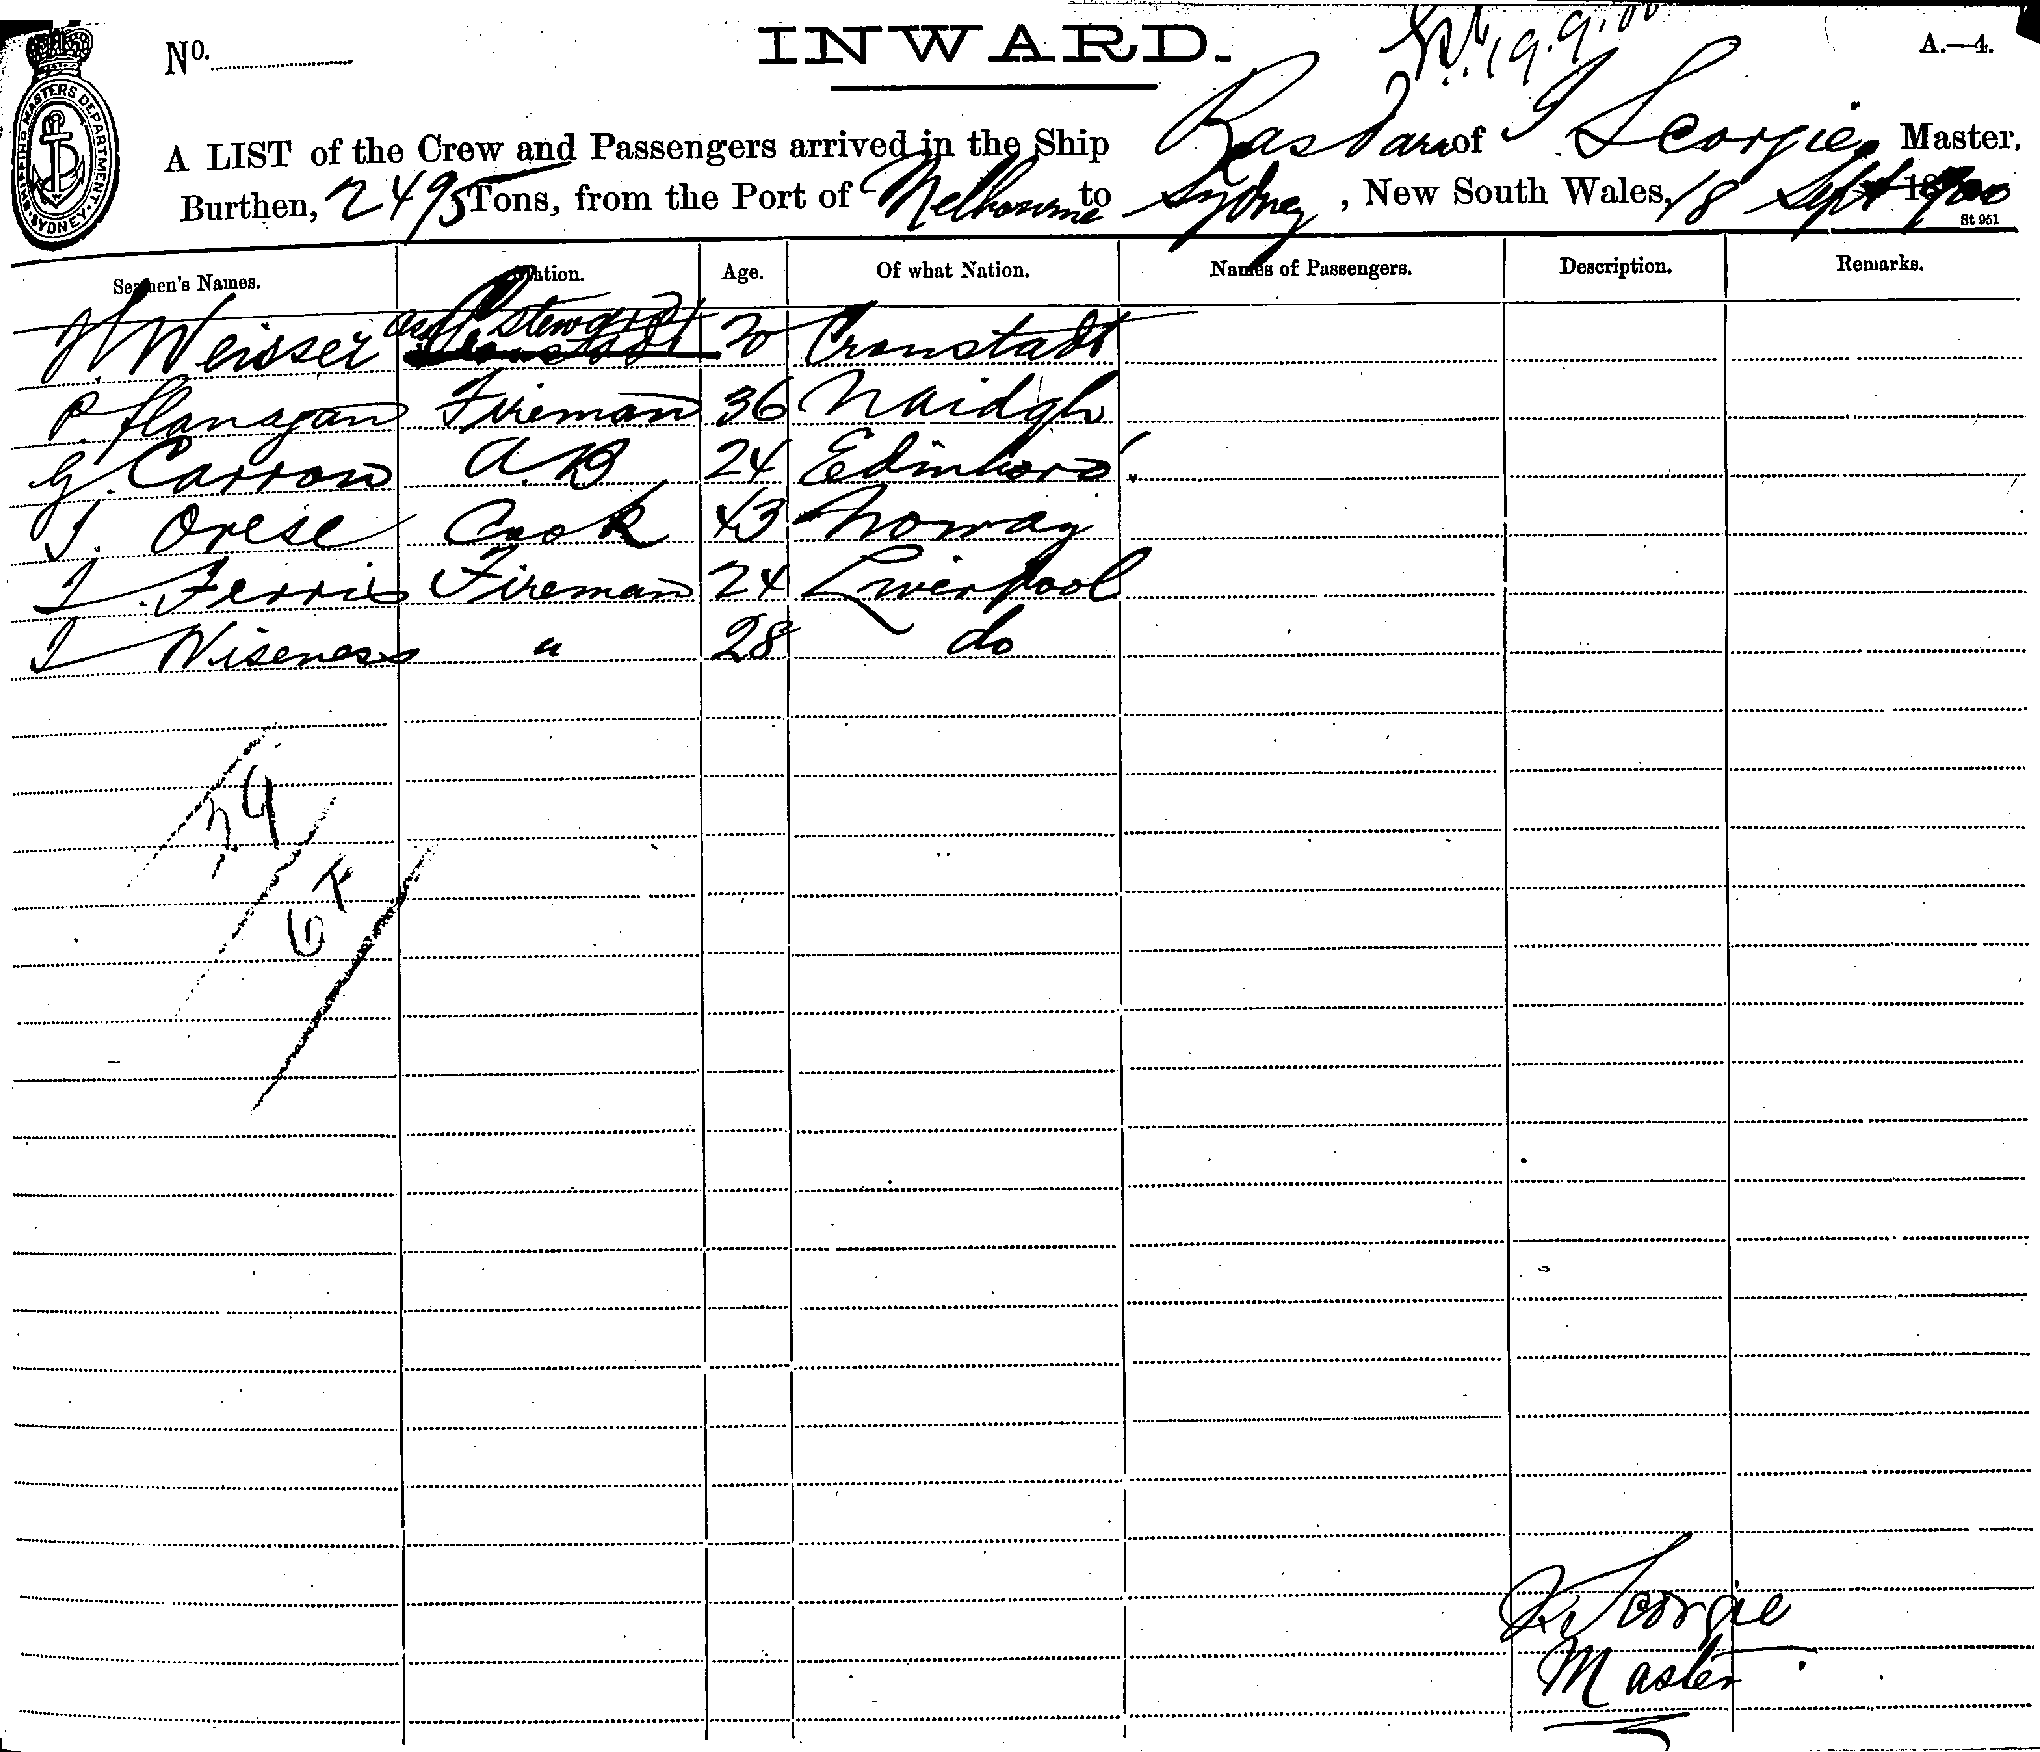 No.
INWARD.
19.9.00
A.—4.
SHIPPING MASTERS DEPARTMENT
SYDNEY
A LIST of the Crew and Passengers arrived in the Ship Ras Dara of Scorgie Master,
Burthen, 2495 Tons, from the Port of Melbourne to Sydney, New South Wales, 18 Sept 1900
St 951
Seamen's Names. Station. Age. Of what Nation. Names of Passengers. Description. Remarks.
H. Weisser Steward 20 Cronstadt
P. Flanagan Fireman 36
G. Carron A.B 24 Edinboro'
J. Orese Cook 43 Norway
J. Ferris Fireman 24 Liverpool
J Wiseness " 28 do
39
Scorgie
Master